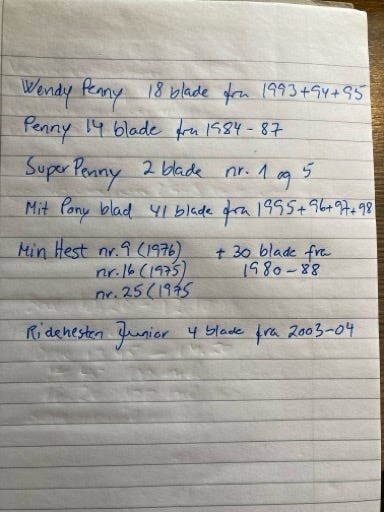 Wendy Penny 18 blade fra 1993+94+95
Penny 14 blade fra 1984-87
SuperPenny 2 blade nr. 1 og 5
Mit Pony blad 41 blade fra 1995+96+97+98
Min Hest nr. 9 (1976) + 30 blade fra
nr. 16 (1975) 1980-88
nr. 25 (1975
Ridehesten Junior 4 blade fra 2003-04